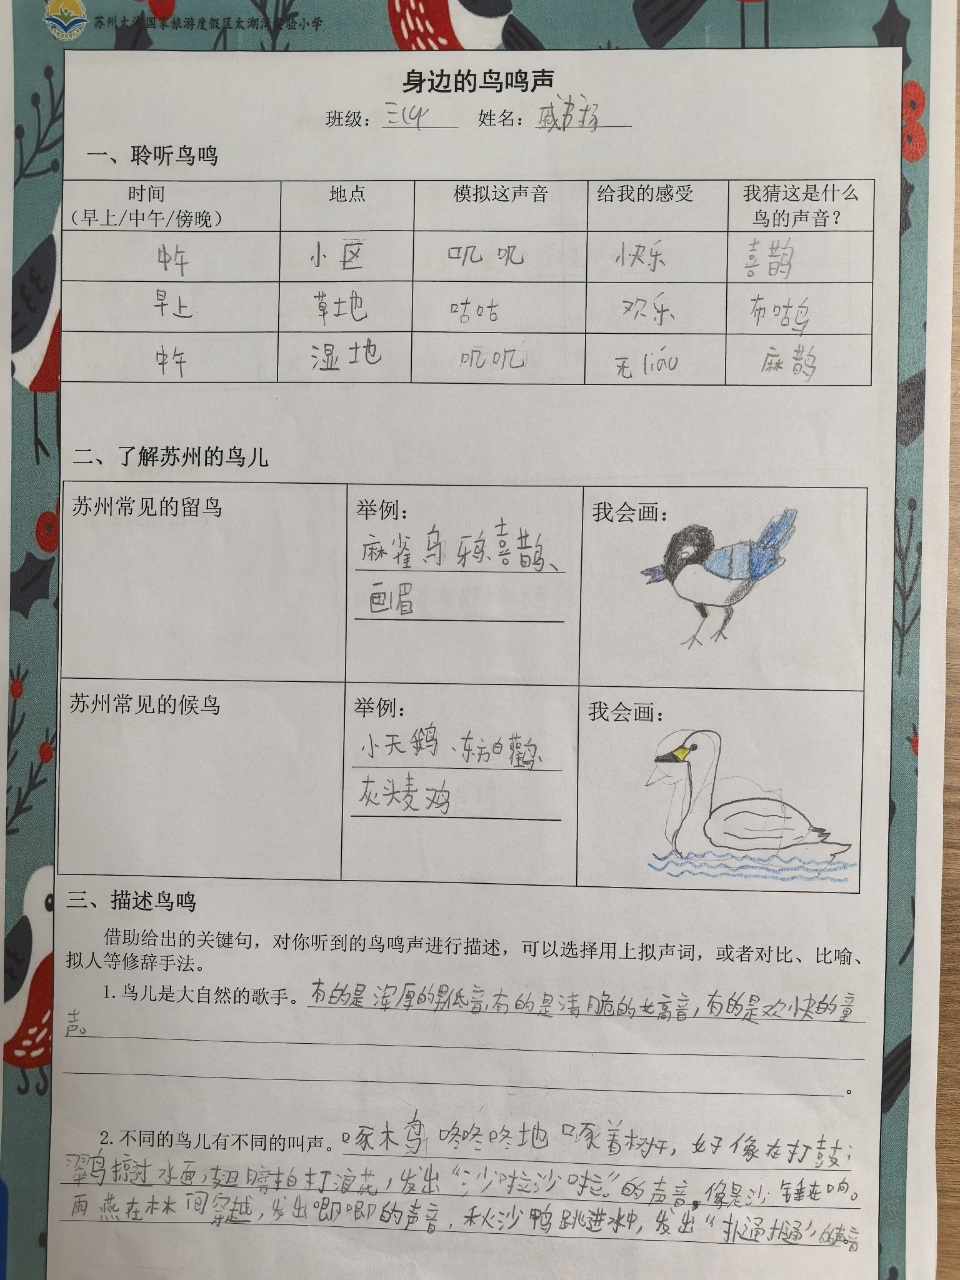 苏州太湖国家旅游度假区太湖湾实验小学
身边的鸟鸣声
班级：三(4) 姓名：戚
一、聆听鸟鸣
时间 地点 模拟这声音 给我的感受 我猜这是什么
（早上/中午/傍晚） 鸟的声音？
中午 小区 叽叽 快乐 喜鹊
早上 草地 咕咕 欢乐 布咕鸟
中午 湿地 叽叽 无liáo 麻鹊
二、了解苏州的鸟儿
苏州常见的留鸟 举例： 我会画：
麻雀 乌鸦、喜鹊、
画眉
苏州常见的候鸟 举例： 我会画：
小天鹅、东方白鹳、
灰头麦鸡
三、描述鸟鸣
借助给出的关键句，对你听到的鸟鸣声进行描述，可以选择用上拟声词，或者对比、比喻、
拟人等修辞手法。
1. 鸟儿是大自然的歌手。有的是浑厚的男低音，有的是清脆的女高音，有的是欢快的童
声。
。
2. 不同的鸟儿有不同的叫声。啄木鸟咚咚咚地啄着树干，好像在打鼓；
翠鸟掠过水面，翅膀拍打浪花，发出“沙啦沙啦。”的声音，像是沙锤在响。
雨燕在林间穿越，发出唧唧的声音，秋沙鸭跳进水中，发出“扑通扑通”的声音